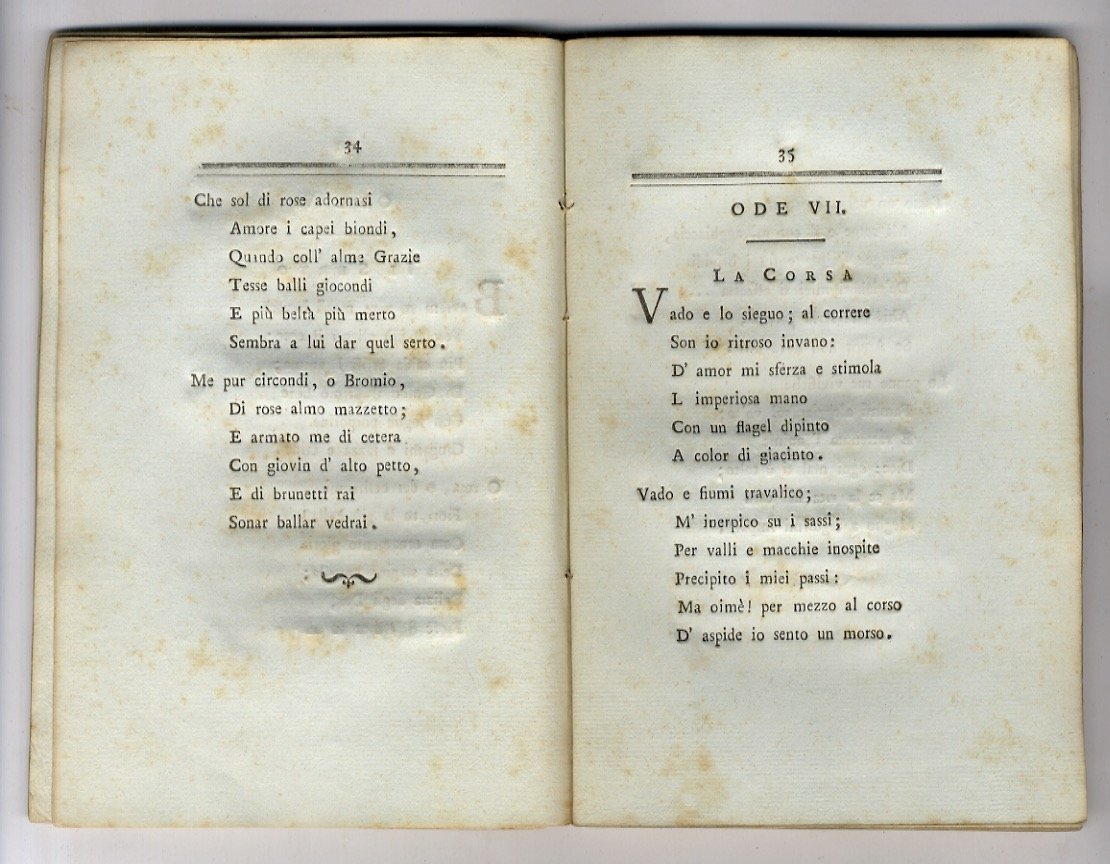 34
Che sol di rose adornasi
Amore i capei biondi,
Quando coll' alme Grazie
Tesse balli giocondi
E più beltà più merto
Sembra a lui dar quel serto.
Me pur circondi, o Bromio,
Di rose almo mazzetto;
E armato me di cetera
Con giovin d' alto petto,
E di brunetti rai
Sonar ballar vedrai.
35
ODE VII.
LA CORSA
Vado e lo sieguo; al correre
Son io ritroso invano:
D' amor mi sferza e stimola
L imperiosa mano
Con un flagel dipinto
A color di giacinto.
Vado e fiumi travalico;
M' inerpico su i sassi;
Per valli e macchie inospite
Precipito i miei passi:
Ma oimè! per mezzo al corso
D' aspide io sento un morso.